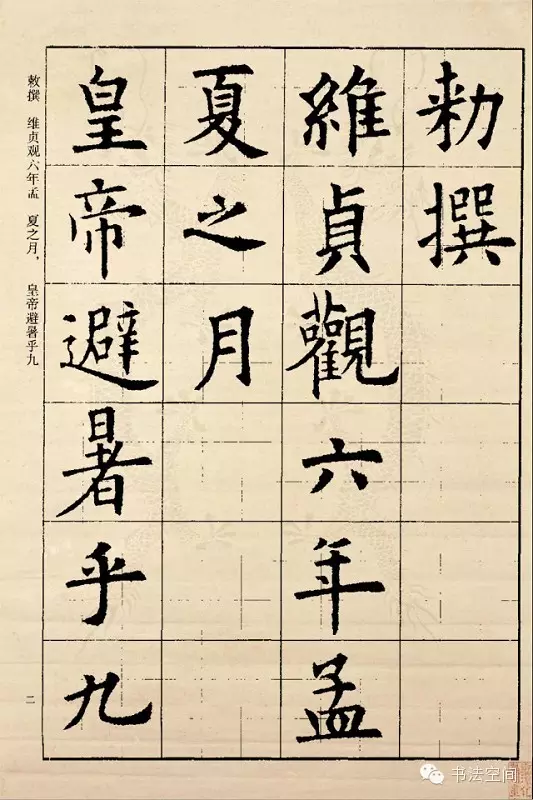 勅撰
維貞觀六年孟
夏之月
皇帝避暑乎九
敕撰 维贞观六年孟 夏之月， 皇帝避暑乎九
二
书法空间